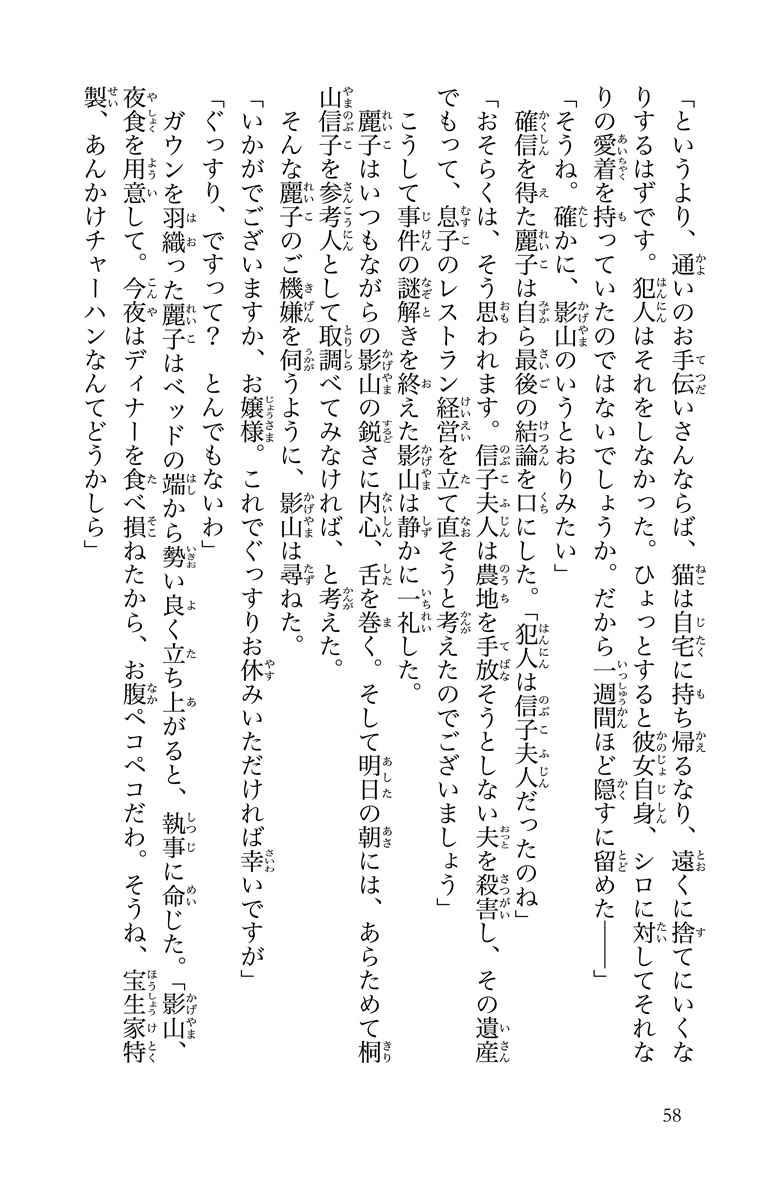 「というより、通いのお手伝いさんならば、猫は自宅に持ち帰るなり、遠くに捨てにいくな
りするはずです。犯人はそれをしなかった。ひょっとすると彼女自身、シロに対してそれな
りの愛着を持っていたのではないでしょうか。だから一週間ほど隠すに留めた――」
「そうね。確かに、影山のいうとおりみたい」
確信を得た麗子は自ら最後の結論を口にした。「犯人は信子夫人だったのね」
「おそらくは、そう思われます。信子夫人は農地を手放そうとしない夫を殺害し、その遺産
でもって、息子のレストラン経営を立て直そうと考えたのでございましょう」
こうして事件の謎解きを終えた影山は静かに一礼した。
麗子はいつもながらの影山の鋭さに内心、舌を巻く。そして明日の朝には、あらためて桐
山信子を参考人として取調べてみなければ、と考えた。
そんな麗子のご機嫌を伺うように、影山は尋ねた。
「いかがでございますか、お嬢様。これでぐっすりお休みいただければ幸いですが」
「ぐっすり、ですって？　とんでもないわ」
ガウンを羽織った麗子はベッドの端から勢い良く立ち上がると、執事に命じた。「影山、
夜食を用意して。今夜はディナーを食べ損ねたから、お腹ペコペコだわ。そうね、宝生家特
製、あんかけチャーハンなんてどうかしら」
58